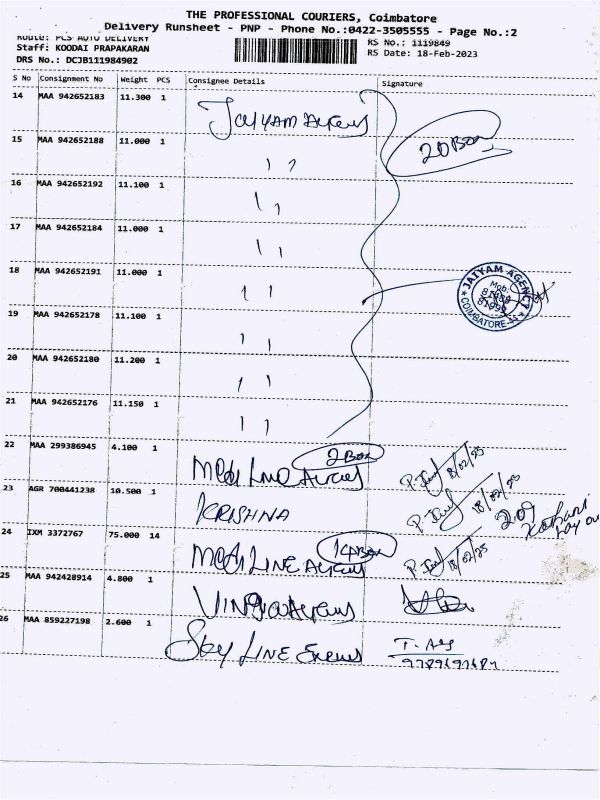 THE PROFESSIONAL COURIERS, Coimbatore
Delivery Runsheet - PNP - Phone No.:0422-3505555 - Page No.:2
Route: PCS AUTO DELIVERY
Staff: KOODAI PRAPAKARAN
DRS No.: DCJB111984902
RS No.: 1119849
RS Date: 18-Feb-2023
S No Consignment No Weight PCS Consignee Details Signature
14 MAA 942652183 11.300 1 JAIYAM
20 Box
15 MAA 942652188 11.000 1 ''
16 MAA 942652192 11.100 1 ''
17 MAA 942652184 11.000 1 ''
18 MAA 942652191 11.000 1 ''
JAIYAM AGENCY
Mob:
COIMBATORE
19 MAA 942652178 11.100 1 ''
20 MAA 942652180 11.200 1 ''
21 MAA 942652176 11.150 1 ''
2 Box
22 MAA 299386945 4.100 1 Medi Line 18/02/23
23 AGR 700441238 10.500 1 KRISHNA 18/02/23
209
24 IXM 3372767 75.000 14 Medi LINE 18/02/23
14 Box
25 MAA 942428914 4.800 1
26 MAA 859227198 2.600 1 Sky LINE